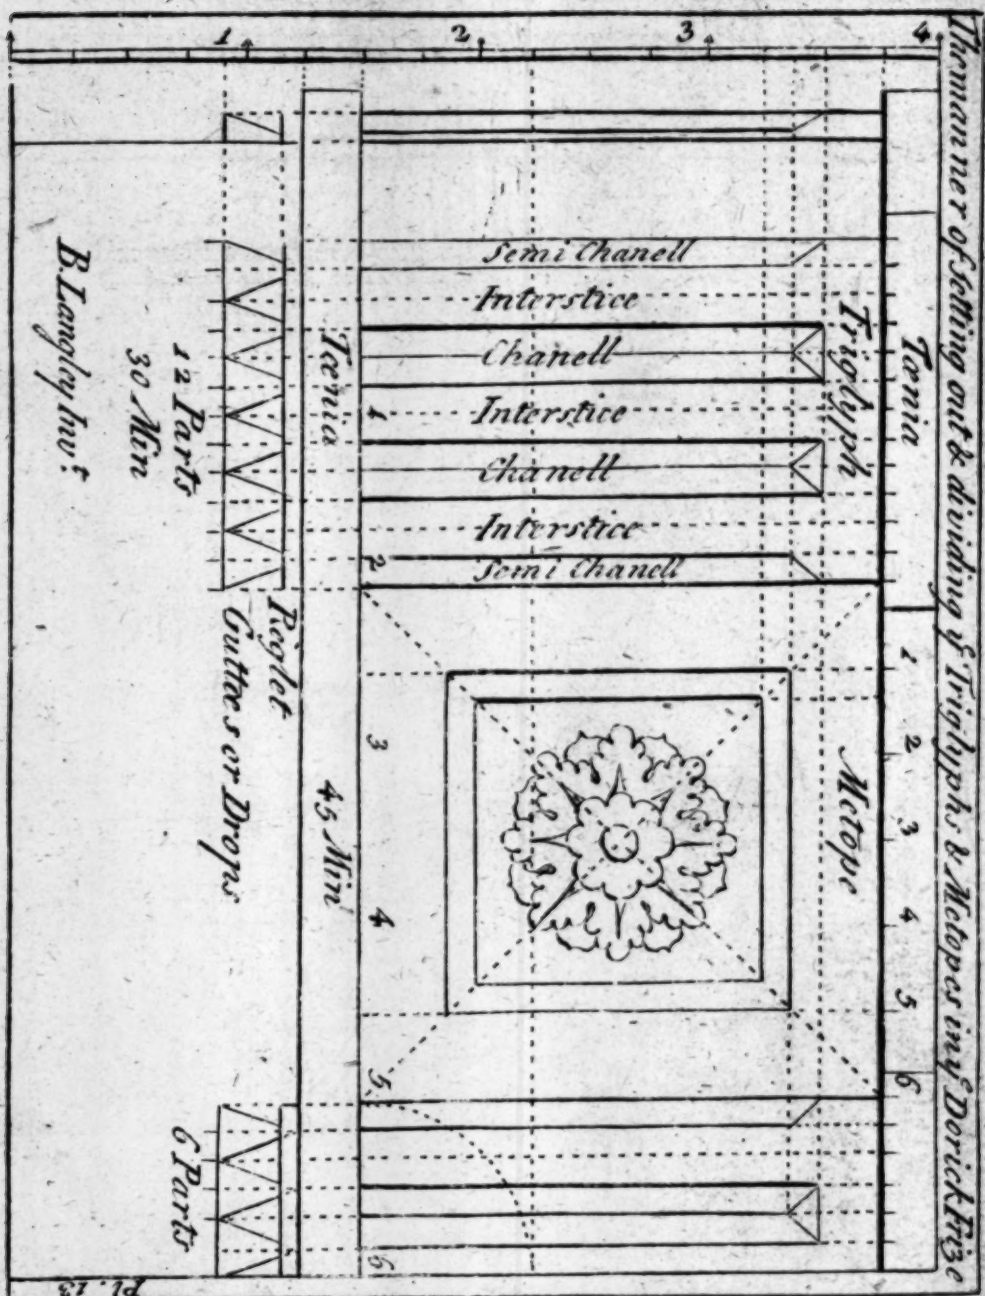 The manner of setting out & dividing yᵉ Triglyphs & Metopes in yᵉ Dorick Frize
1 2 3 4
Tænia
Triglyph
Metope
1 2 3 4 5 6
Semi Chanell
Interstice
Chanell
Interstice
Chanell
Interstice
Semi Chanell
1 2 3 4 5 6
Tænia
45 Min
Reglet
Guttæs or Drops
12 Parts
30 Min
6 Parts
B. Langley Invᵗ
Pl. 13